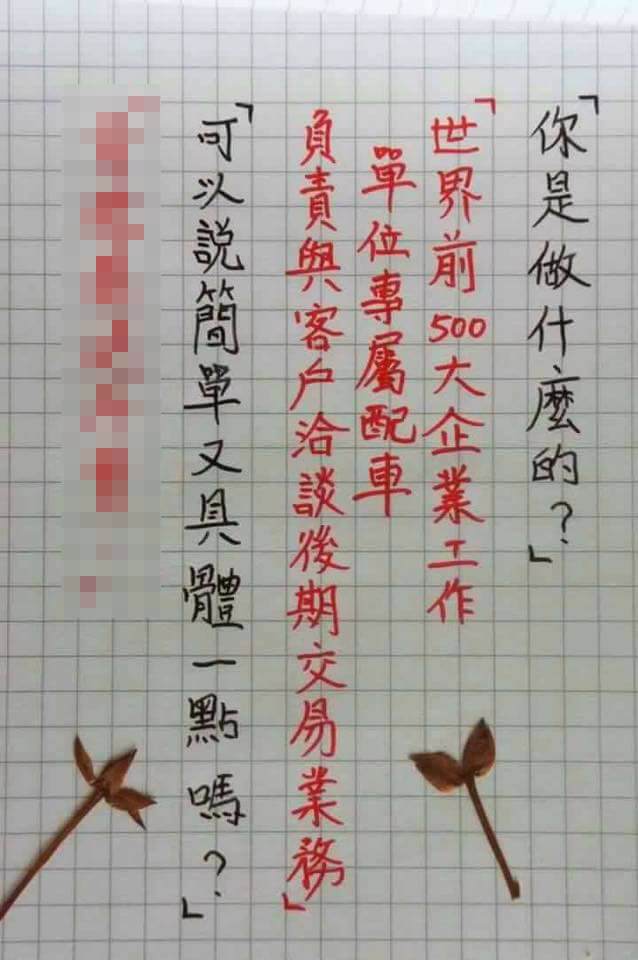 「你是做什麼的？」
「世界前500大企業工作
單位專屬配車
負責與客戶洽談後期交易業務」
「可以說簡單又具體一點嗎？」